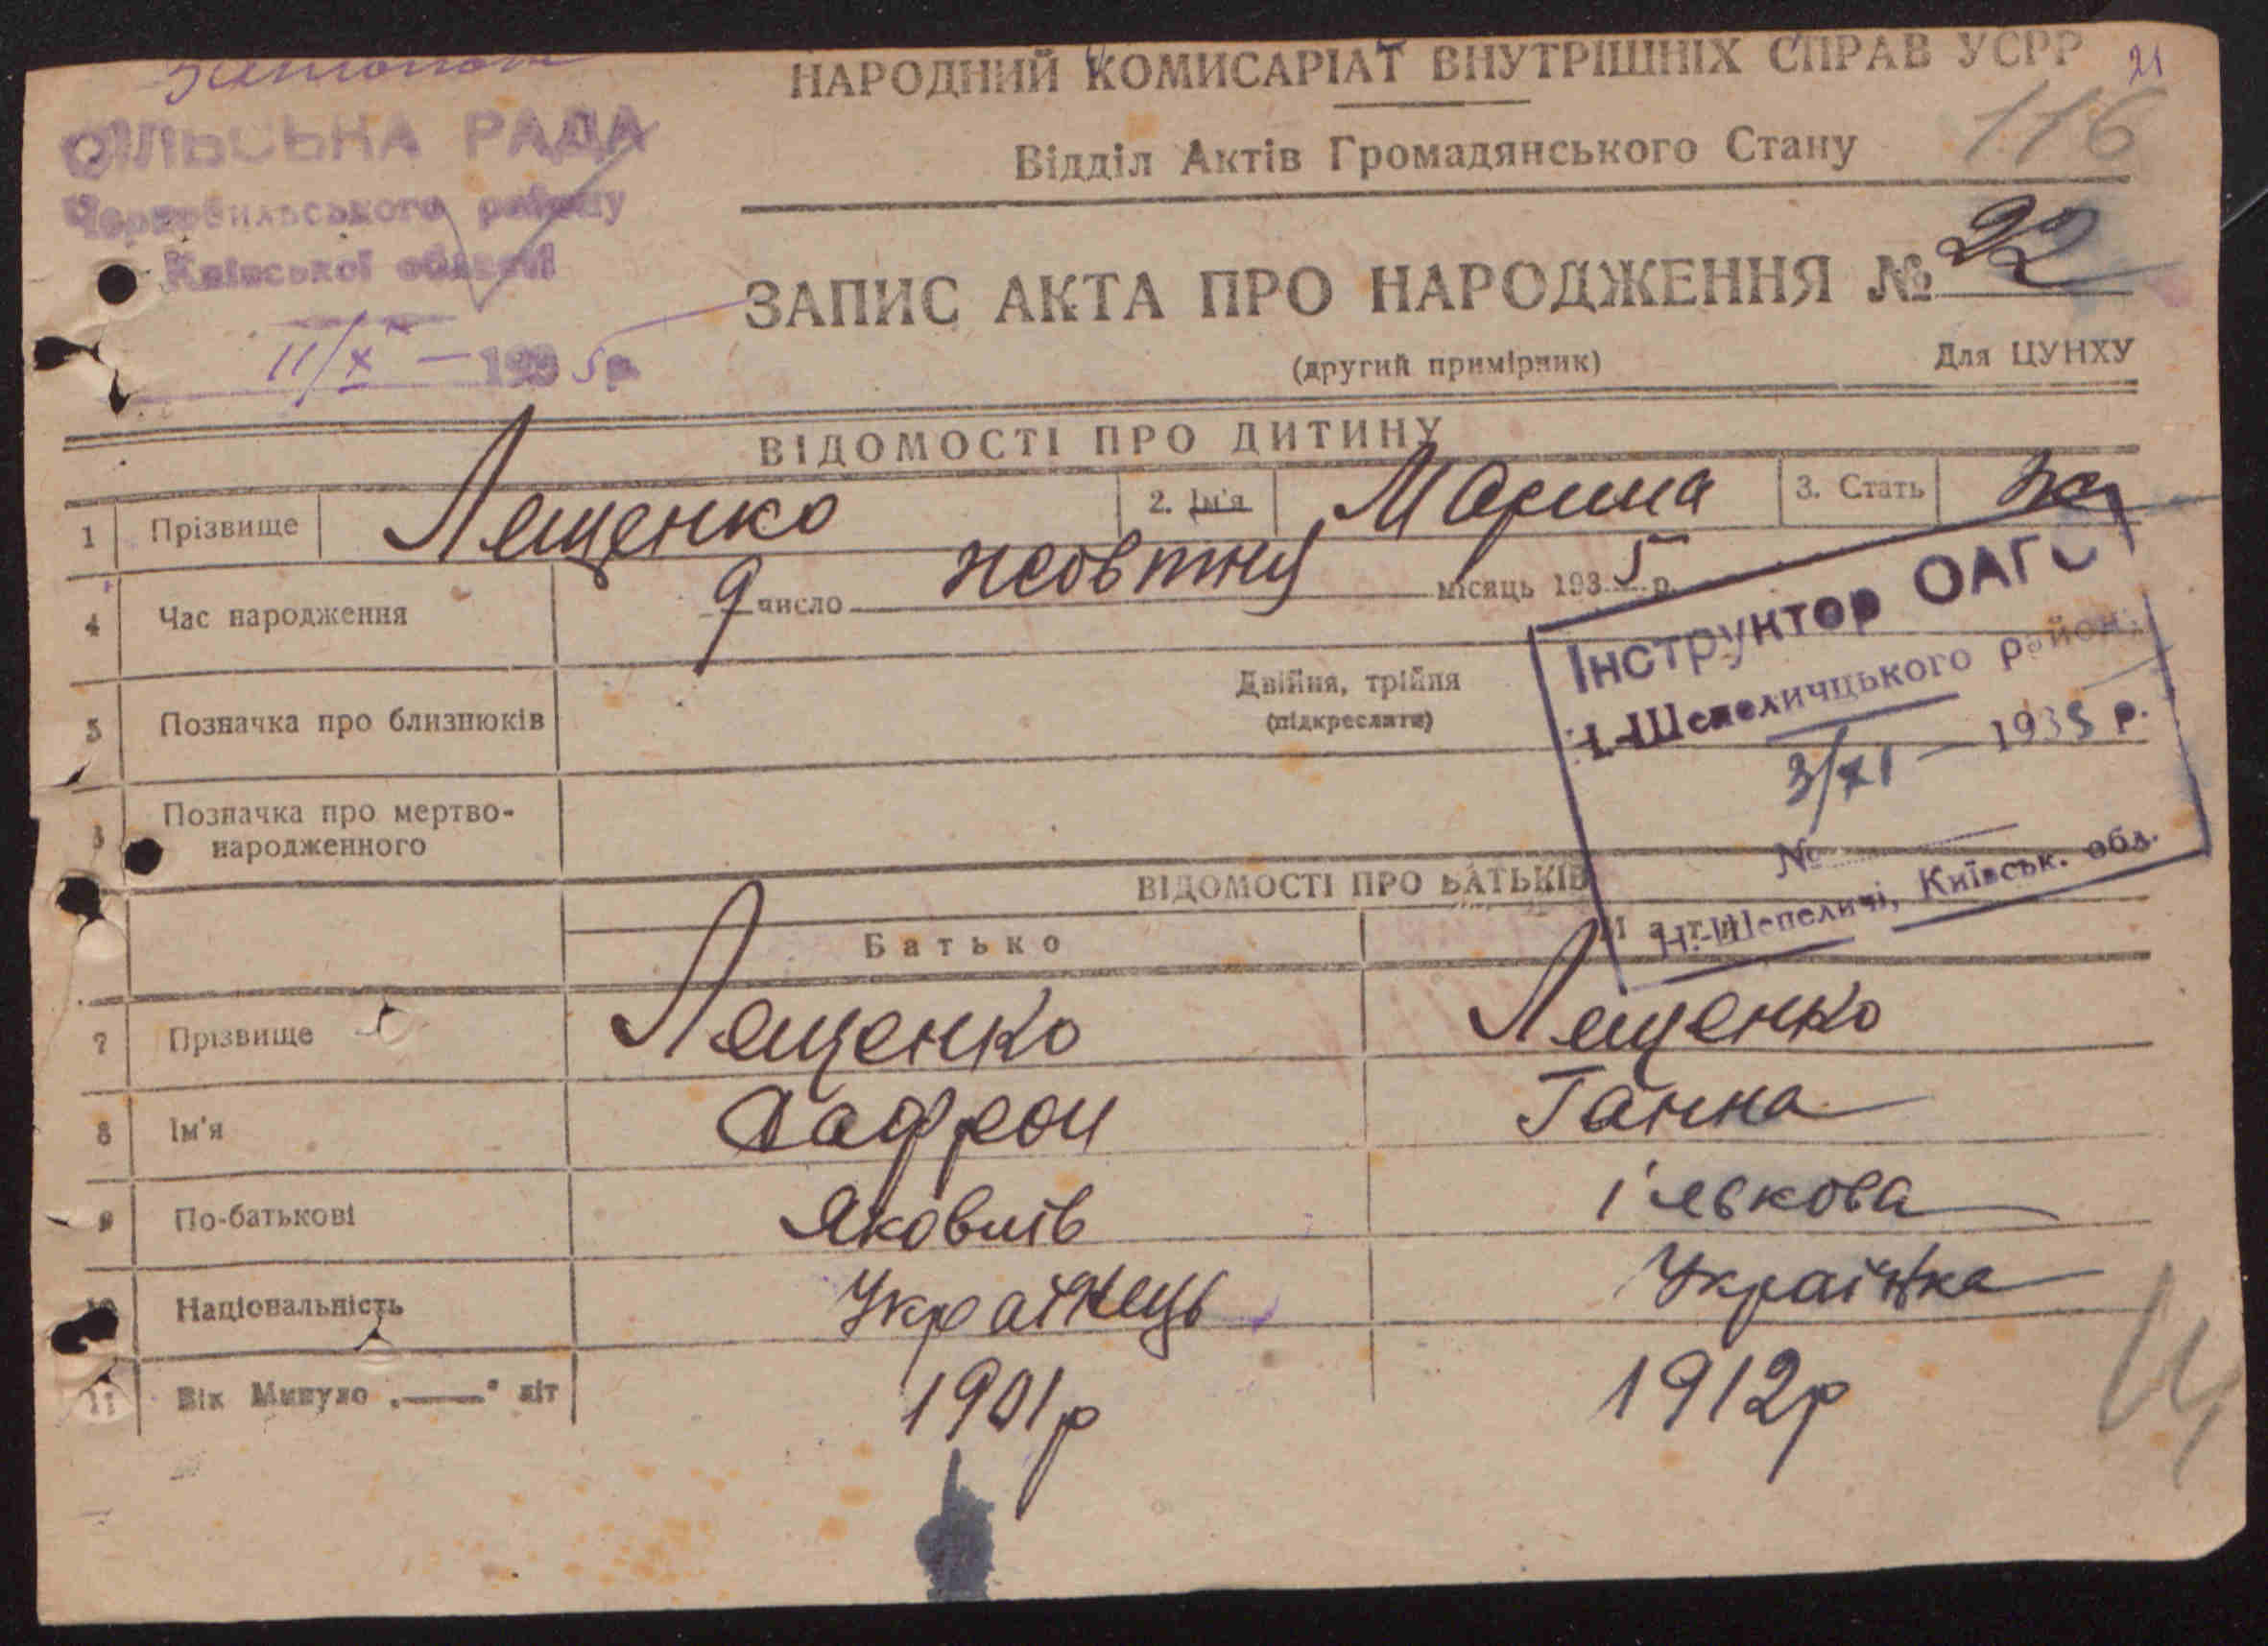 НАРОДНИЙ КОМИСАРІАТ ВНУТРІШНІХ СПРАВ УСРР
21
116
СІЛЬСЬКА РАДА
Чорнобильського району
Київської області
11/X — 1935 р.
Відділ Актів Громадянського Стану
ЗАПИС АКТА ПРО НАРОДЖЕННЯ № 22
(другий примірник)
Для ЦУНХУ
ВІДОМОСТІ ПРО ДИТИНУ
1 Прізвище Лещенко 2. Ім'я Марина 3. Стать ж
4 Час народження 9 число жовтня місяць 1935 р.
Інструктор ОАГС
Н-Шепеличцького району
3/XI — 1935 р.
№
Н.-Шепеличі, Київськ. обл.
5 Позначка про близнюків Двійня, трійня
(підкреслити)
Позначка про мертво-
народженного
ВІДОМОСТІ ПРО БАТЬКІВ
Батько Мати
7 Прізвище Лещенко Лещенко
8 Ім'я Сафрон Ганна
9 По-батькові Яковлів ількова
10 Національність Українець Українка
11 Вік Минуло „—" літ 1901р 1912р